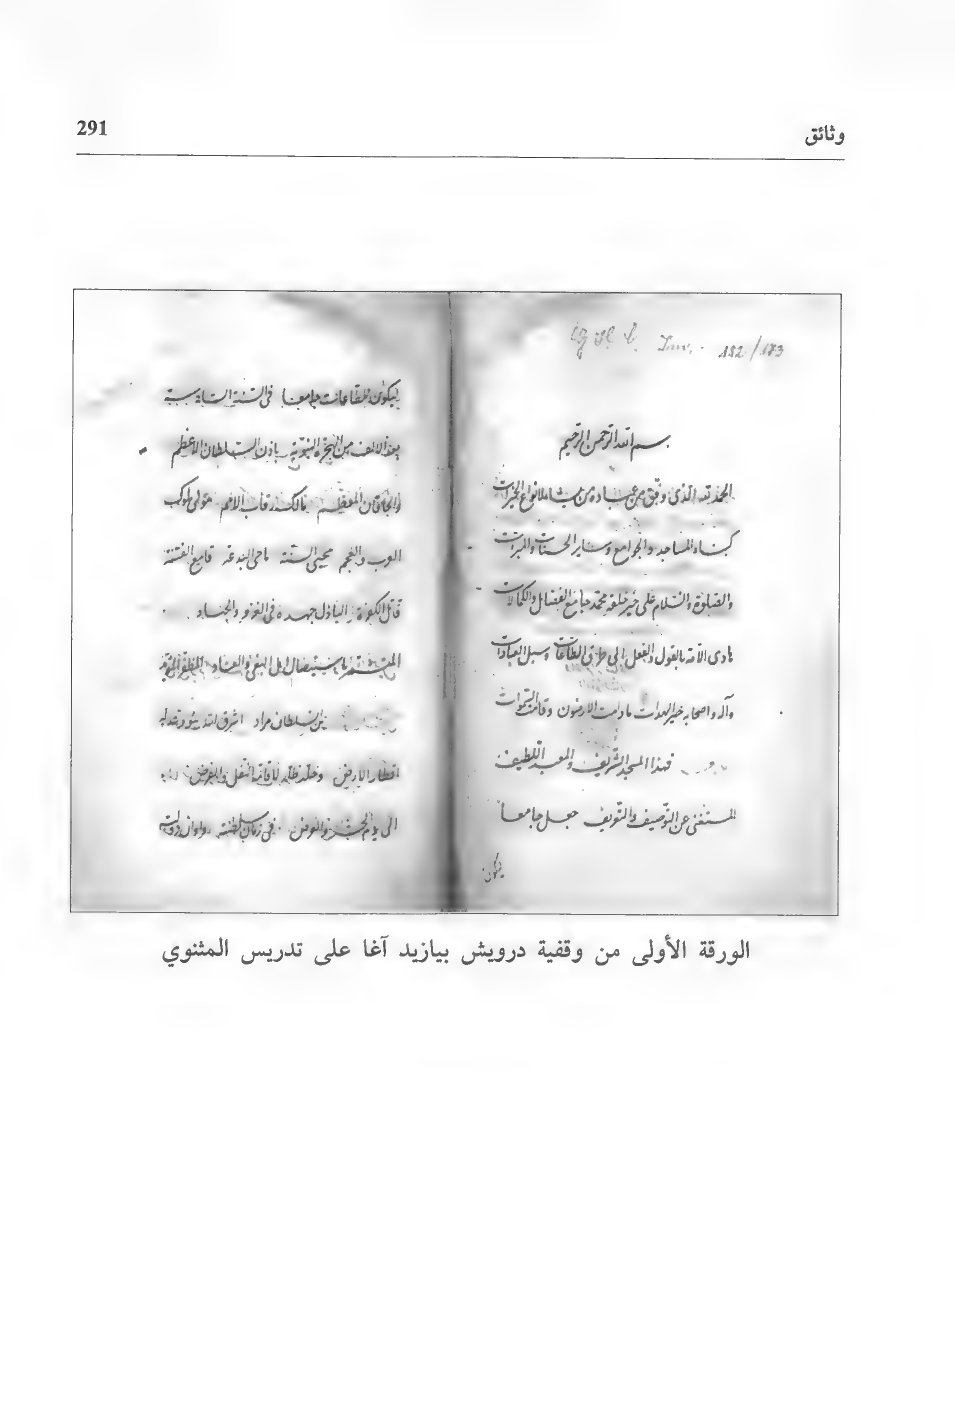 وثائق
291
Inv. 182/183
بسم الله الرحمن الرحيم
الحمد لله الذى وفق من عباده من يشاء لانواع الخيرات
كبناء المساجد والجوامع وساير الحسنات والمبرات
والصلوة والسلام على خير خلقه محمد جامع الفضائل والكمالات
هادى الامة بالقول والفعل الى طرق الطاعات وسبل العبادات
وآله واصحابه خير الهداة مادامت الارضون وقامت السموات
فهذا المسجد الشريف والمعبد اللطيف
المستغنى عن التوصيف والتعريف جعل جامعا
ليكون
ليكون للطاعات جامعا فى السنة السادسة
بعد الالف من الهجرة النبوية باذن السلطان الاعظم
والخاقان المعظم مالك رقاب الامم مولى ملوك
العرب والعجم محيى السنة ماحى البدعة قامع الفتنة
قاتل الكفرة الباذل جهده فى الغزو والجهاد
باستيصال اهل البغى والعناد
بن السلطان مراد اشرق الله بنور عدله
اقطار الارض وخلد ظله لاقامة النفل والفرض
الى يوم الحشر والعرض فى زمان سلطنته واوان دولته
الورقة الأولى من وقفية درويش بيازيد آغا على تدريس المثنوي